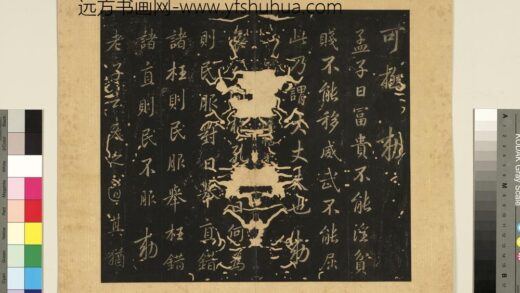 远方书画网-www.yfshuhua.com
可 勅
孟子曰冨貴不能淫貧
賤不能移威武不能屈
此乃謂大丈夫也 勅
公 孔 曰何為
則民服對曰舉直錯
諸枉則民服舉枉錯
諸直則民不服 勅
老子 之道其猶
KODAK Gray Scale